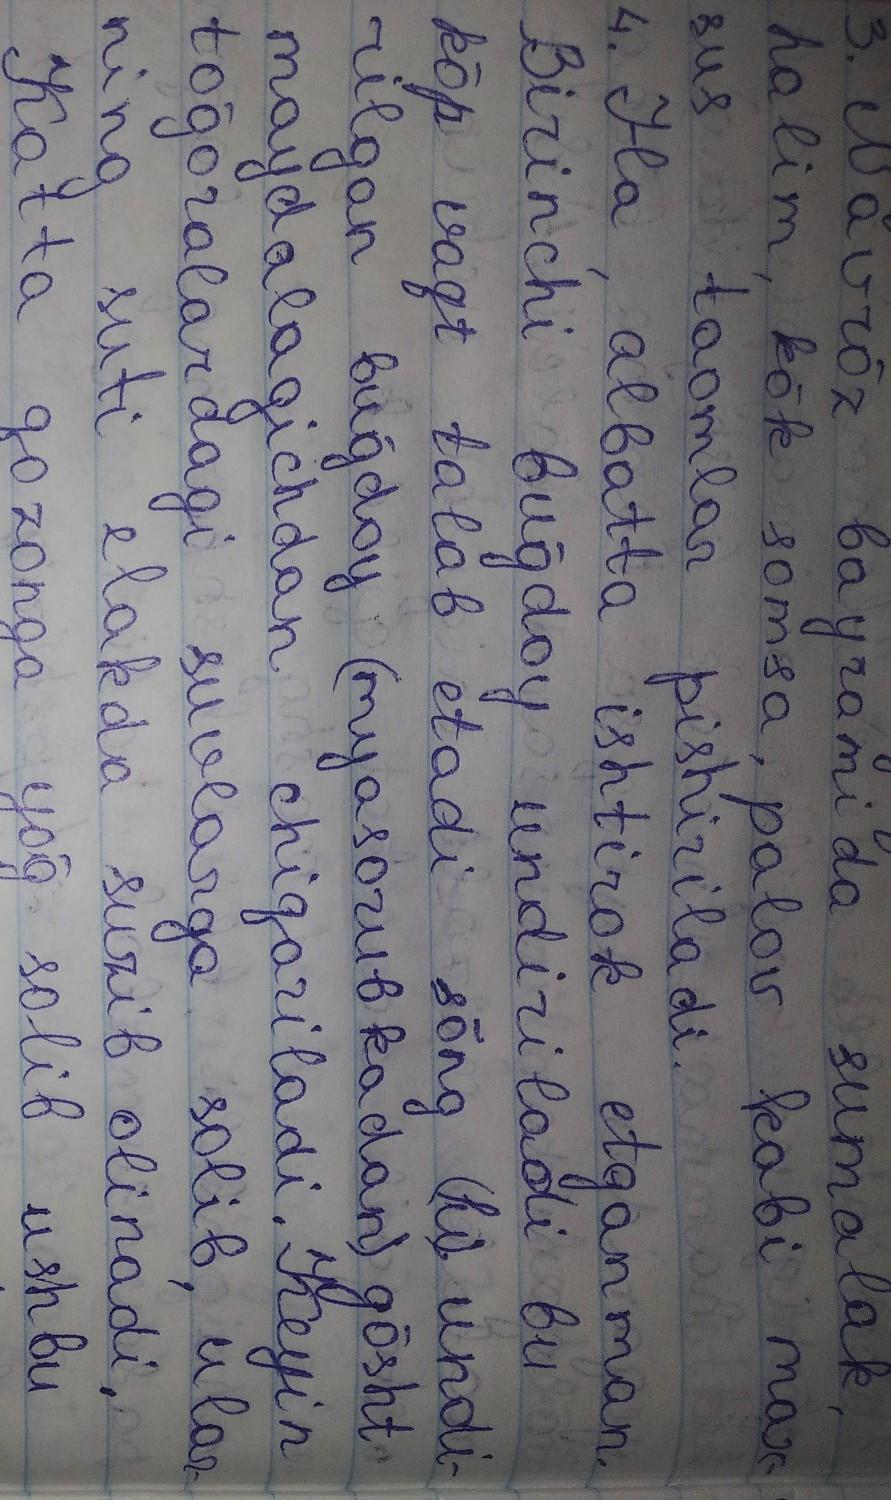 3. Navrōz bayramida sumalak,
halim, kōk somsa, palov kabi max-
sus taomlar pishiriladi.
4. Ha, albatta ishtirok etganman.
Birinchi buḡdoy undiriladi bu
kōp vaqt talab etadi sōng undi-
rilgan buḡdoy (myasorubkadan) gōsht
maydalagichdan chiqariladi. Keyin
toḡoralardagi suvlarga solib, ular-
ning suti elakda suzib olinadi,
Katta qozonga yōḡ solib ushbu